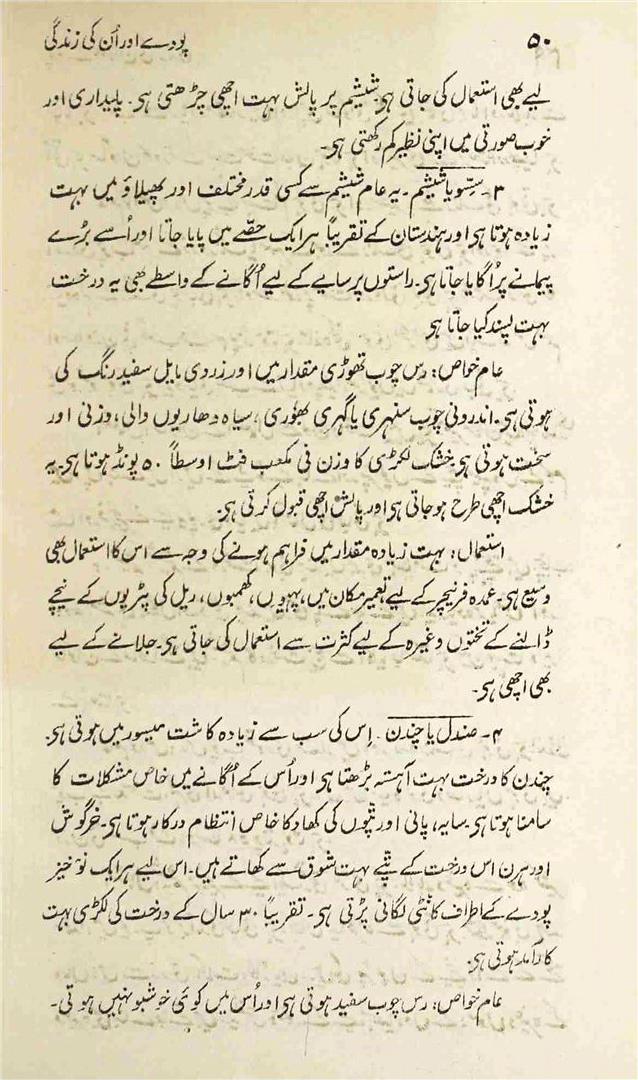 ۵۰ پودے اور اُن کی زندگی
لیے بھی استعمال کی جاتی ہی شیشم پر پالش بہت اچھی چڑھتی ہی۔ پایداری اور
خوب صورتی میں اپنی نظیر کم رکھتی ہی۔
۳۔ سِسّو یا شیشم۔ یہ عام شیشم سے کسی قدر مختلف اور پھیلاؤ میں بہت
زیادہ ہوتا ہی اور ہندستان کے تقریباً ہر ایک حصّے میں پایا جاتا اور اُسے بڑے
پیمانے پر اُگایا جاتا ہی۔ راستوں پر سایے کے لیے اُگانے کے واسطے بھی یہ درخت
بہت پسند کیا جاتا ہی
عام خواص: رس چوب تھوڑی مقدار میں اور زردی مایل سفید رنگ کی
ہوتی ہی۔ اندرونی چوب سنہری یا گہری بھوری، سیاہ دھاریوں والی، وزنی اور
سخت ہوتی ہی۔ خشک لکڑی کا وزن فی مکعب فٹ اوسطاً ۵۰ پونڈ ہوتا ہی۔ یہ
خشک اچھی طرح ہو جاتی ہی اور پالش اچھی قبول کرتی ہی۔
استعمال: بہت زیادہ مقدار میں فراہم ہونے کی وجہ سے اس کا استعمال بھی
وسیع ہی۔ عمدہ فرنیچر کے لیے تعمیر مکان میں، پہیوں، کھمبوں، ریل کی پٹریوں کے نیچے
ڈالنے کے تختوں وغیرہ کے لیے کثرت سے استعمال کی جاتی ہی۔ جلانے کے لیے
بھی اچھی ہی۔
۴۔ صندل یا چندن۔ اِس کی سب سے زیادہ کاشت میسور میں ہوتی ہی۔
چندن کا درخت بہت آہستہ بڑھتا ہی اور اُس کے اُگانے میں خاص مشکلات کا
سامنا ہوتا ہی۔ سایہ، پانی اور پتّوں کی کھاد کا خاص انتظام درکار ہوتا ہی۔ خرگوش
اور ہرن اس درخت کے پتّے بہت شوق سے کھاتے ہیں۔ اس لیے ہر ایک نوخیز
پودے کے اطراف کانٹی لگانی پڑتی ہی۔ تقریباً ۳۰ سال کے درخت کی لکڑی بہت
کارآمد ہوتی ہی۔
عام خواص: رس چوب سفید ہوتی ہی اور اُس میں کوئی خوشبو نہیں ہوتی۔